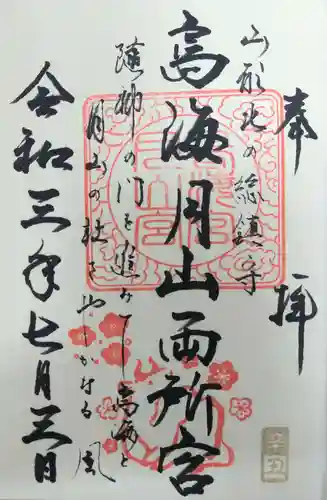 奉拝
山形北の総鎮守
鳥海月山両所宮
随神の門を進みて鳥海と
月山の杜さやかなる風
令和三年七月三日
辛丑